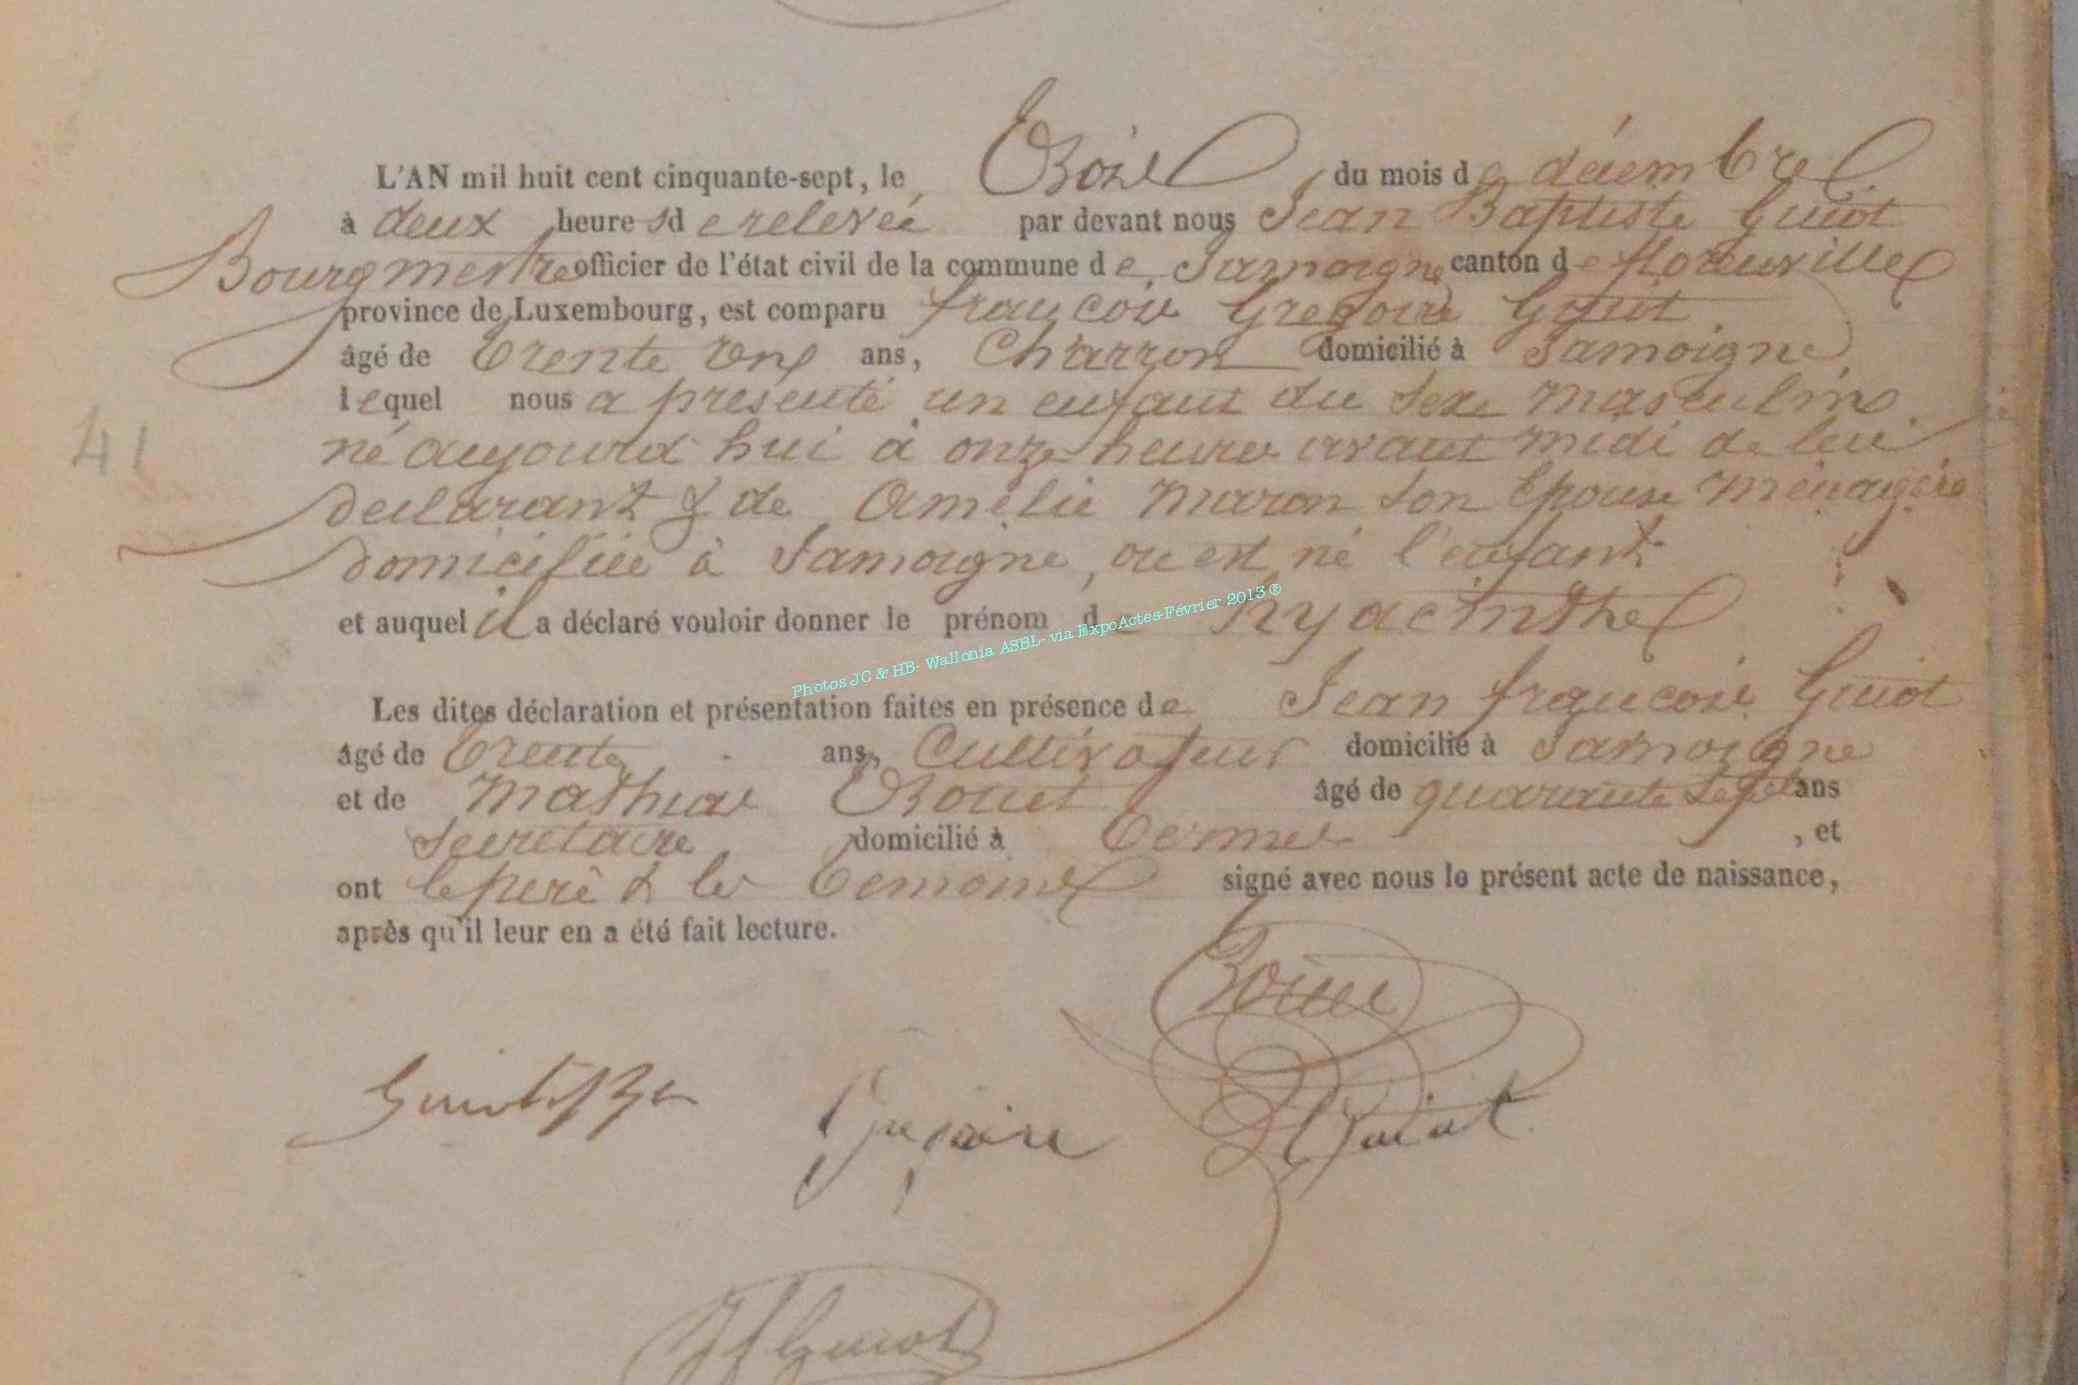 L'AN mil huit cent cinquante-sept, le Trois du mois de décembre
à deux heures de relevée par devant nous Jean Baptiste Guiot
Bourgmestre officier de l'état civil de la commune de Jamoigne canton de florenville
province de Luxembourg, est comparu françois Grégoire Guiot
âgé de trente ans, Charron domicilié à Jamoigne
lequel nous a présenté un enfant du sexe masculin
né aujourd'hui à onze heures avant midi de lui
declarant & de Amélie Maron son Epouse ménagère
domiciliée à Jamoigne, ou est né l'enfant
et auquel il a déclaré vouloir donner le prénom de hyacinthe
Photos JC & HB- Wallonia ASBL- via ExpoActes-Février 2013 ®
Les dites déclaration et présentation faites en présence de Jean françois Guiot
âgé de trente ans, Cultivateur domicilié à Jamoigne
et de Mathias âgé de quarante sept ans
Secretaire domicilié à Termes, et
ont le père & les temoins signé avec nous le présent acte de naissance,
après qu'il leur en a été fait lecture.
41
Guiot
Grégoire
Guiot
JfGuiot